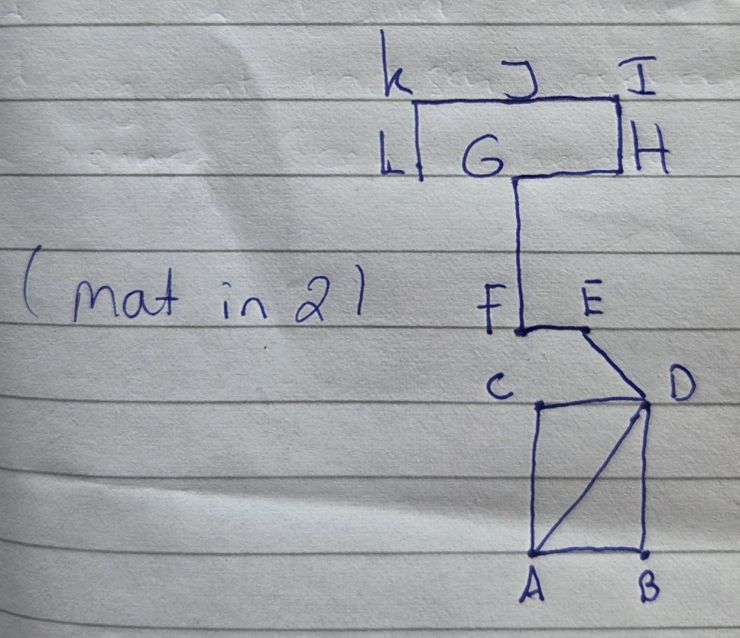 k J I
L G H
(mat in 2)
F E
C D
A B